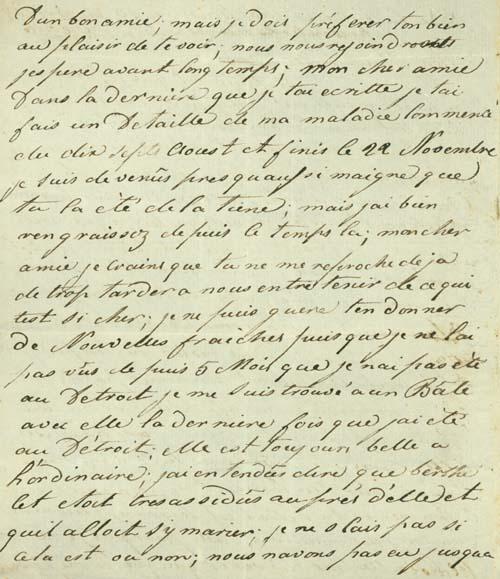 Dun bon amie; mais je dois préferer ton bien
au plaisir de te voir; nous nous rejoindrons
jespere avant long temps; mon cher amie
Dans la derniere que je tai ecritte je tai
fais un Détaille de ma maladie Commencé
du dix sept Aoust et finis le 22 Novembre
je suis de venüs presquausi maigre que
tu la été de la tiene; mais jai bien
rengraissez depuis le temps la; mon cher
amie je crains que tu ne me reproche deja
de trop tarder a nous entretenir de ce qui
test si cher; je ne puis guere ten donner
de Nouvelles fraiches puis que je ne lai
pas vüs de puis 5 Mois que je nai pas été
au Detroit je me suis trouvé a un Bale
avec elle la derniere fois que jai été
au Détroit; elle est toujours belle a
l'ordinaire; jai entendës dire que berthe
let etoit tres assidüs au prés d'elle et
quil alloit sy marier; je ne scais pas si
cela est ou non; nous navons pas eu jusqua